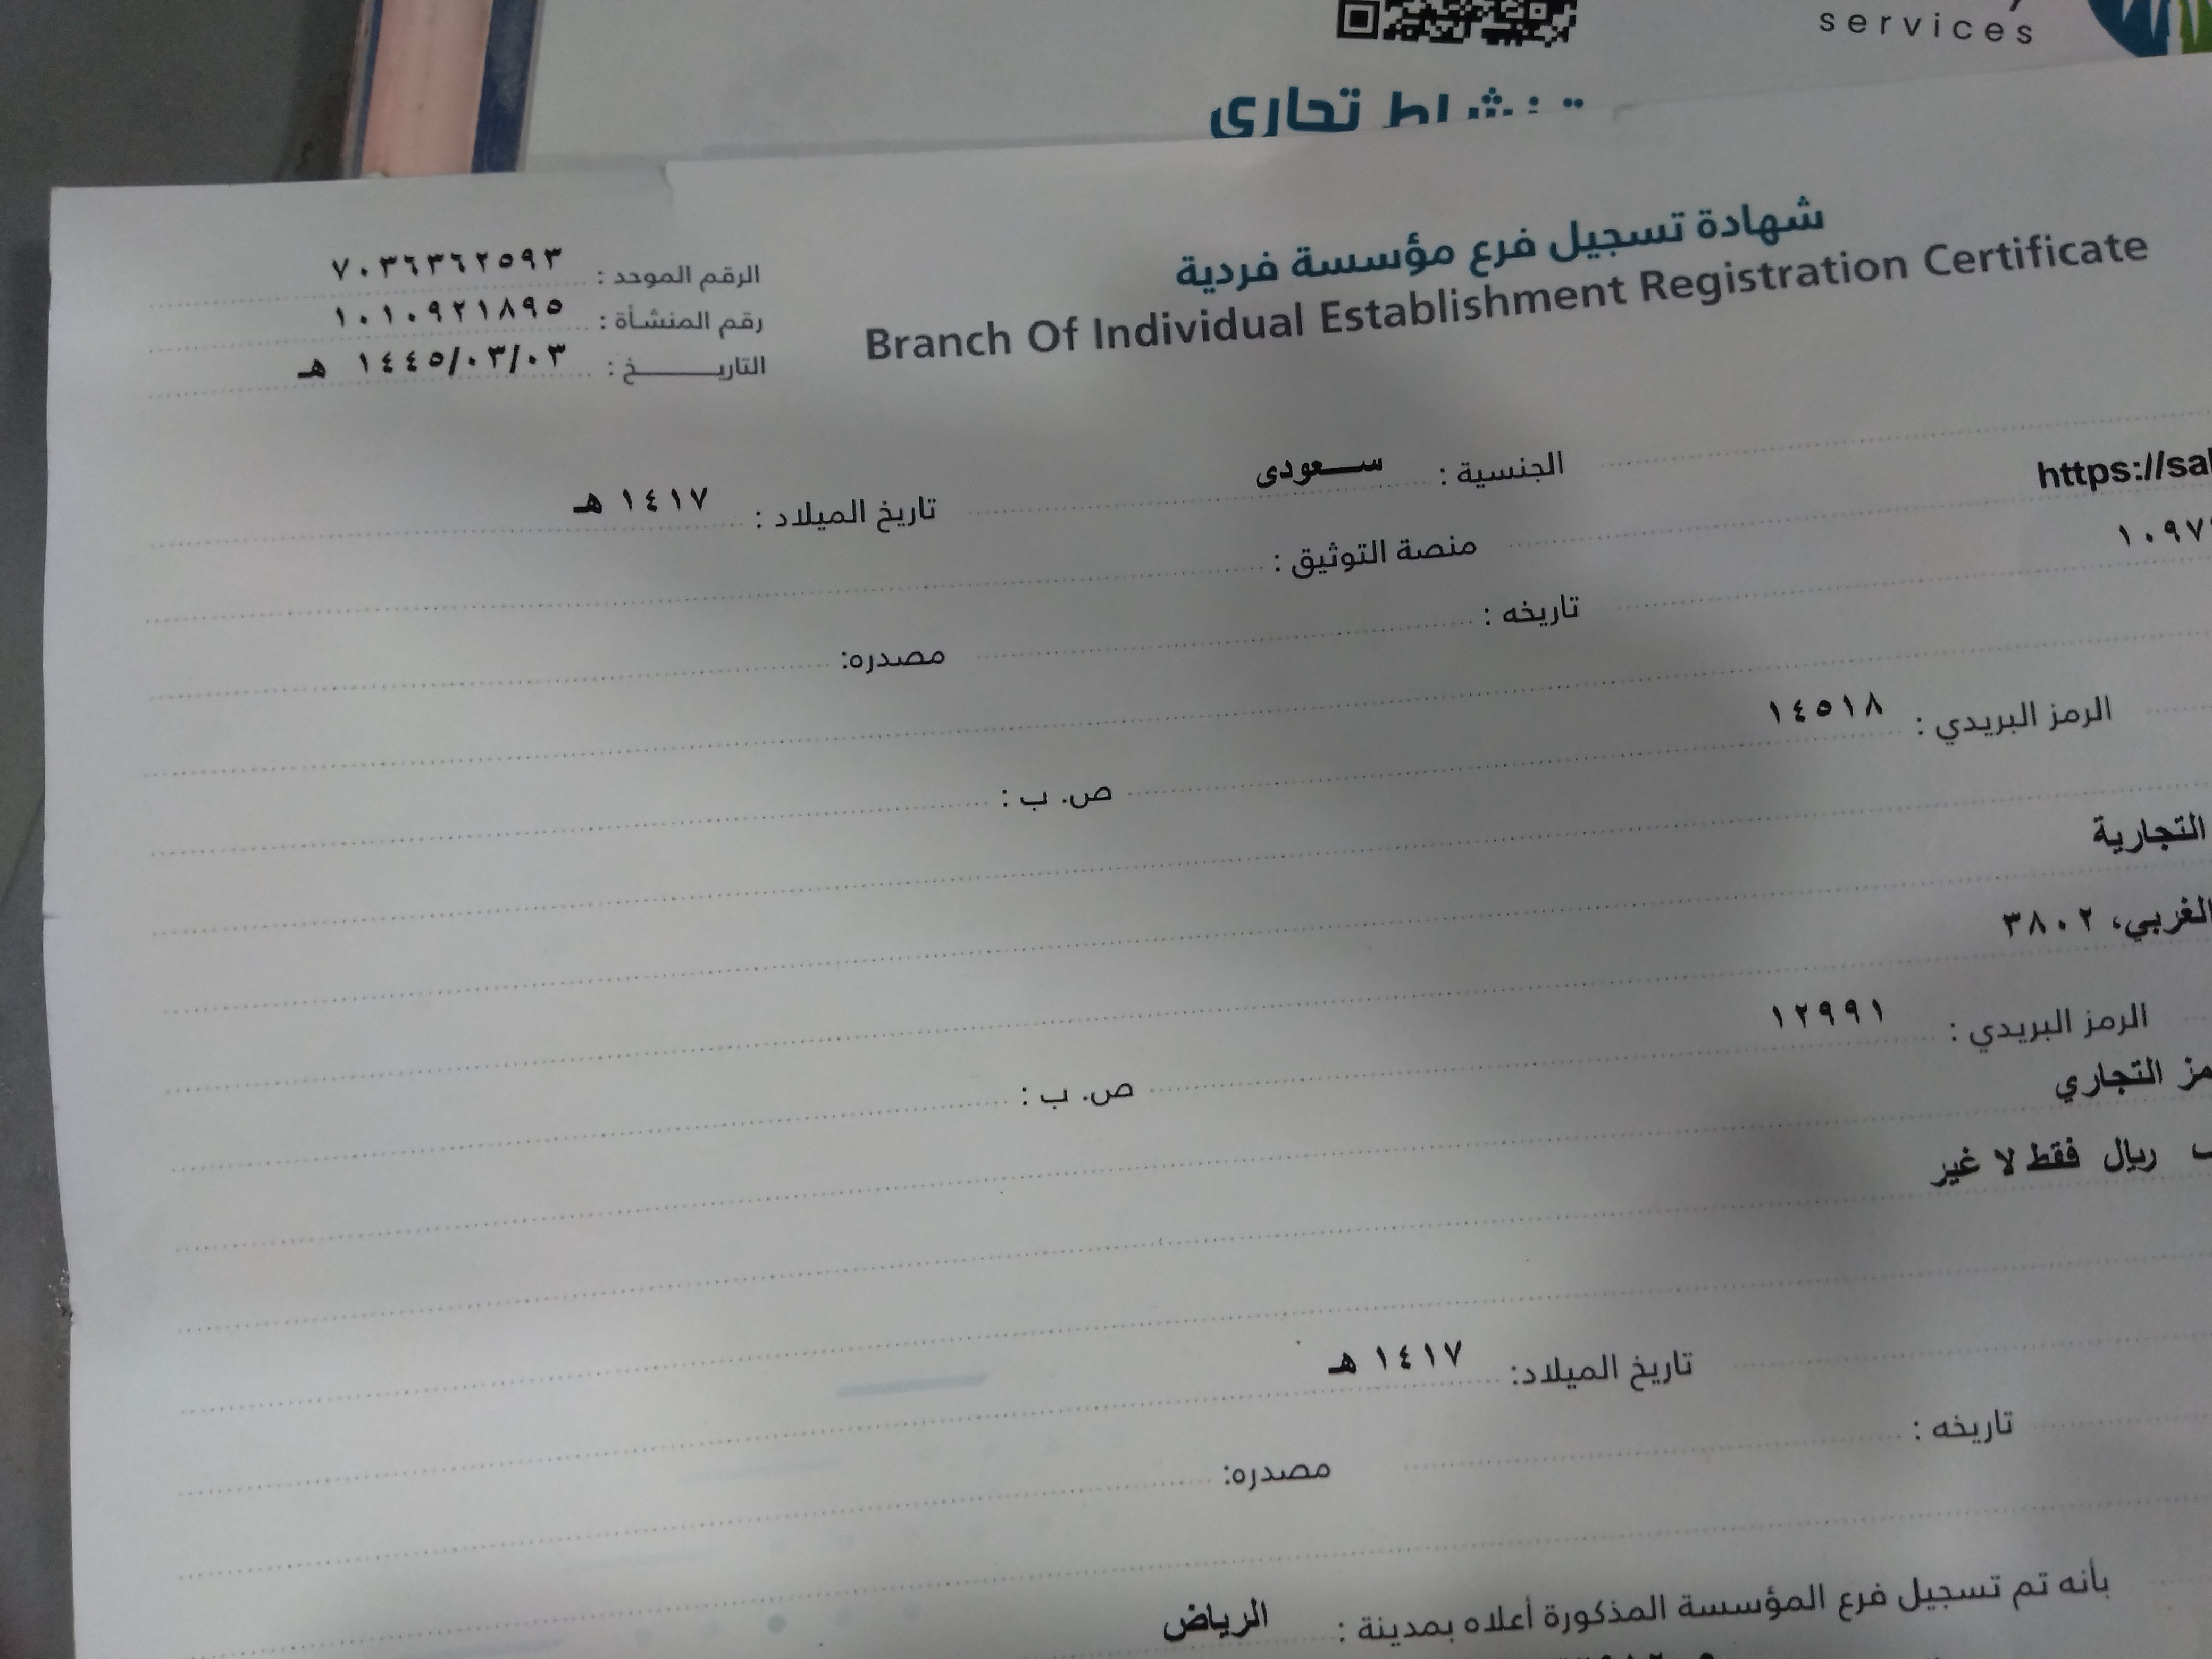 services
نشاط تجاري
شهادة تسجيل فرع مؤسسة فردية
Branch Of Individual Establishment Registration Certificate
الرقم الموحد : ٧٠٣٦٣٦٢٥٩٣
رقم المنشأة : ١٠١٠٩٢١٨٩٥
التاريـــــــخ : ١٤٤٥/٠٣/٠٣ هـ
الجنسية : ســـعودى تاريخ الميلاد : ١٤١٧ هـ
https://sa
منصة التوثيق :
١٠٩٧
تاريخه : مصدره:
الرمز البريدي : ١٤٥١٨ ص. ب :
التجارية
الغربي، ٣٨٠٢
الرمز البريدي : ١٢٩٩١ ص. ب :
التجاري
ريال فقط لا غير
تاريخ الميلاد: ١٤١٧ هـ
تاريخه : مصدره:
بأنه تم تسجيل فرع المؤسسة المذكورة أعلاه بمدينة : الرياض